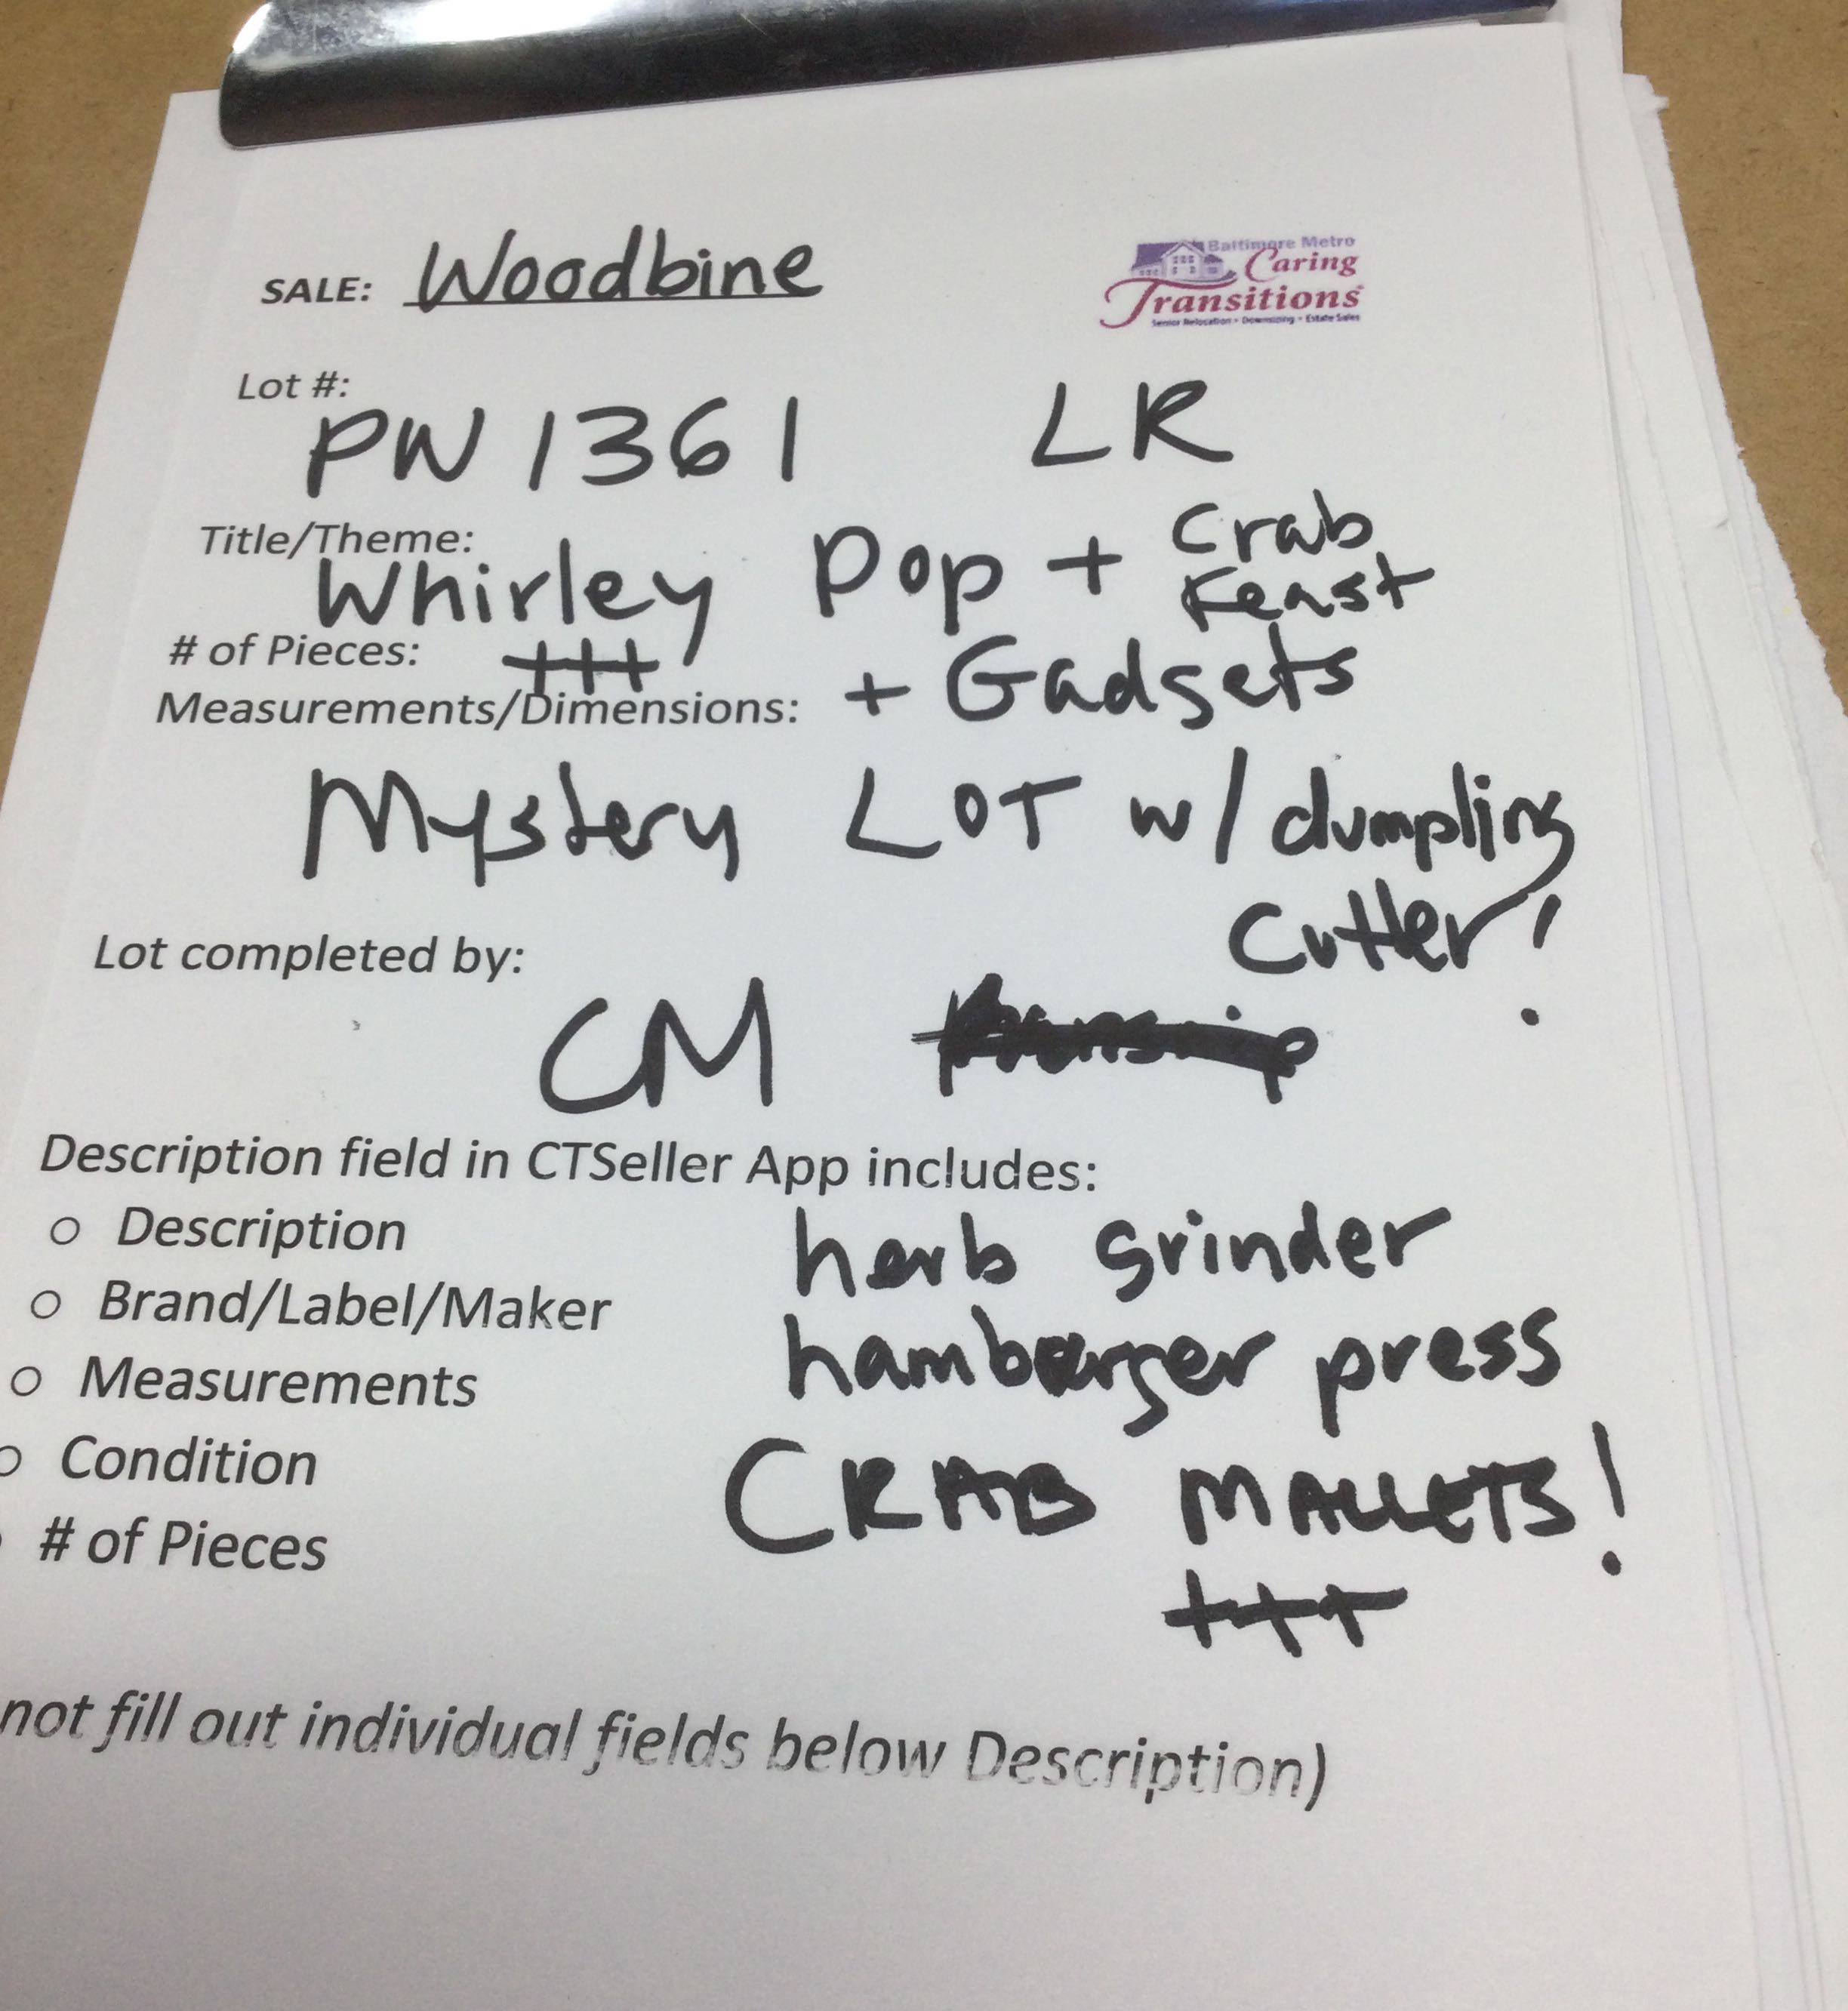 SALE: Woodbine
Baltimore Metro
Caring
Transitions
Senior Relocation • Downsizing • Estate Sales
Lot #:
PW 1361 LR
Title/Theme:
Whirley Pop + Crab
Feast
# of Pieces: +++ + Gadgets
Measurements/Dimensions:
Mystery LOT w/ dumpling
Cutter!
Lot completed by:
CM
Description field in CTSeller App includes:
○ Description
herb grinder
○ Brand/Label/Maker
hamburger press
○ Measurements
○ Condition
CRAB MALLETS!
# of Pieces
+++
not fill out individual fields below Description)